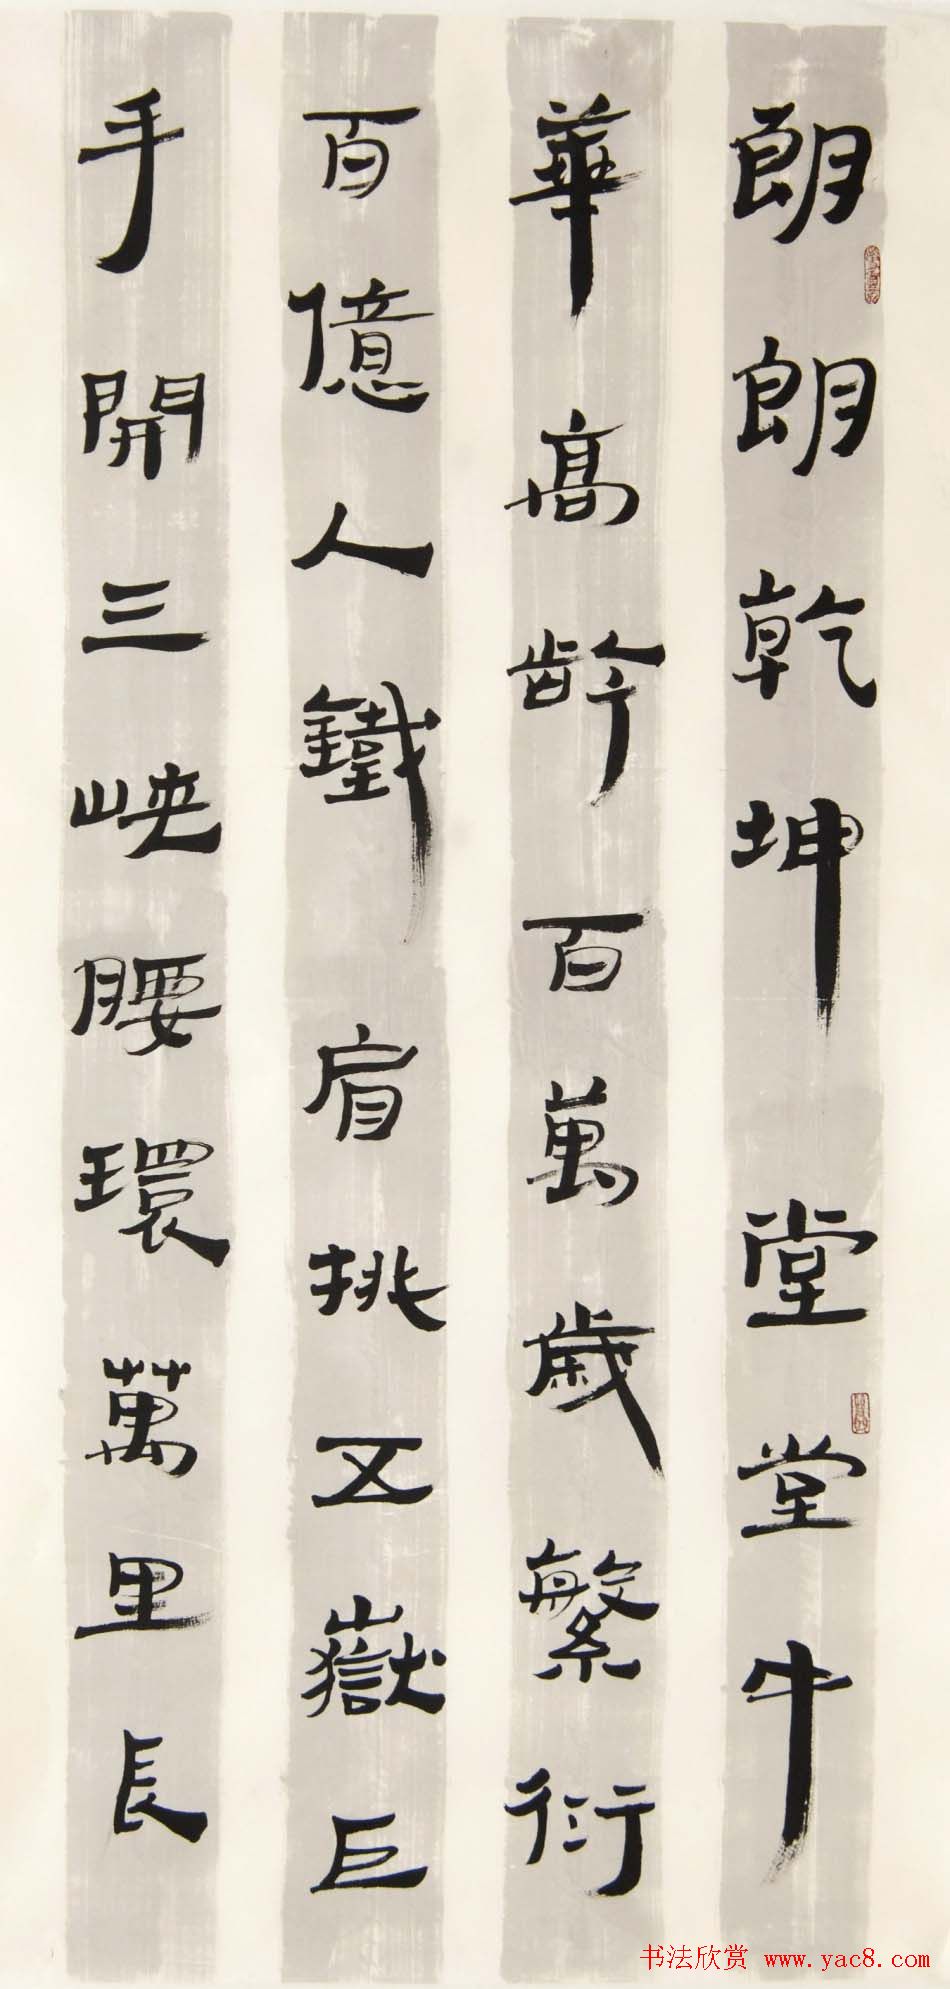 朗朗乾坤堂堂牛
華高齡百萬歲繁衍
百億人鐵肩挑五嶽巨
手開三峽腰環萬里長
书法欣赏 www.yac8.com